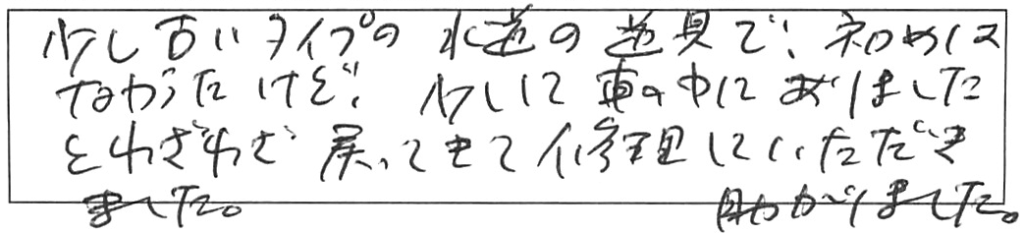 少し古いタイプの 水道の道具で、初めは
なかったけど、少しして車の中にありました
とわざわざ戻ってきて修理していただき
ました。 助かりました。